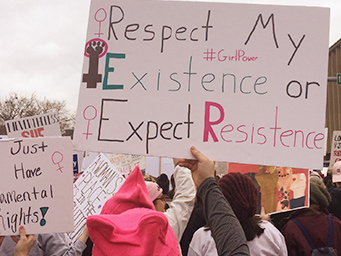 Respect My
#GirlPower
Existence or
Expect Resistence
Just
Have
amental
ights!